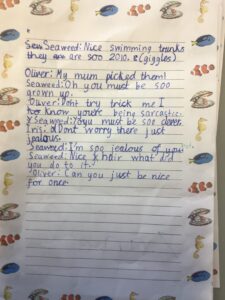 Seaweed: Nice swimming trunks
they are soo 2010. (giggles)
Oliver: My mum picked them!
Seaweed: Oh you must be soo
grown up.
Oliver: Dont try trick me I
know you're being sarcastic.
Seaweed: you must be soo clever.
Iris: Dont worry there just
jealous.
Seaweed: I'm soo jealous of you!
Seaweed: Nice hair what did
you do to it.
Oliver: Can you just be nice
for once.